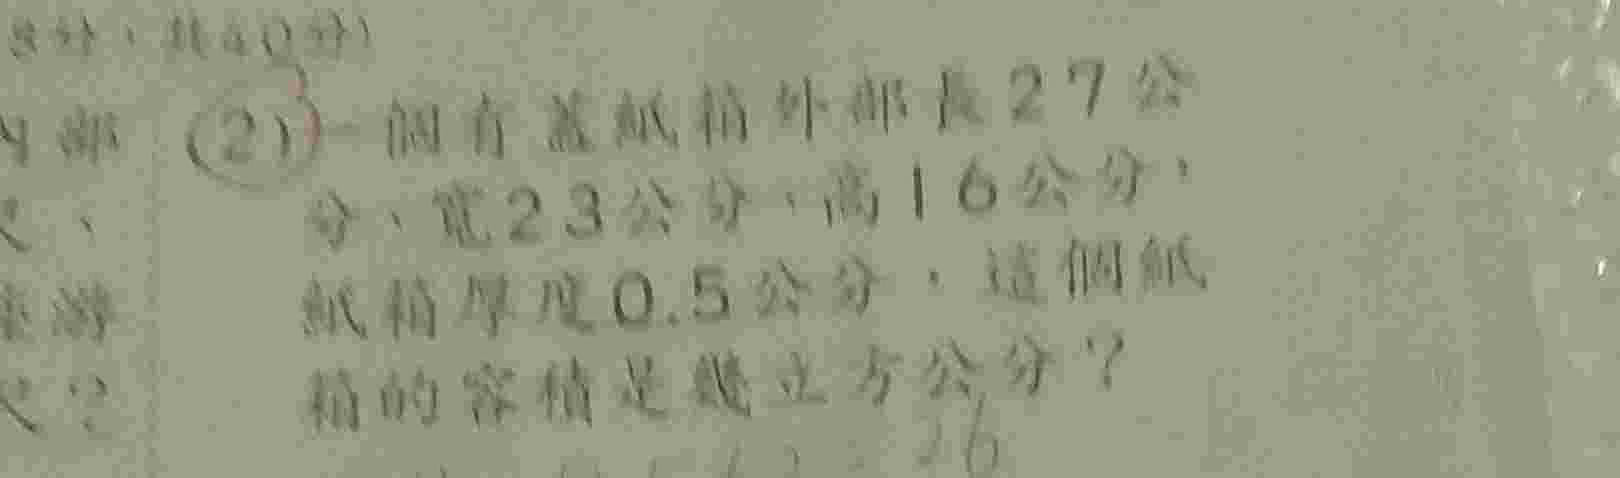 8分，共40分)
內部
(2) 一個有蓋紙箱外部長27公
分、寬23公分、高16公分，
紙箱厚度0.5公分，這個紙
箱的容積是幾立方公分？
26